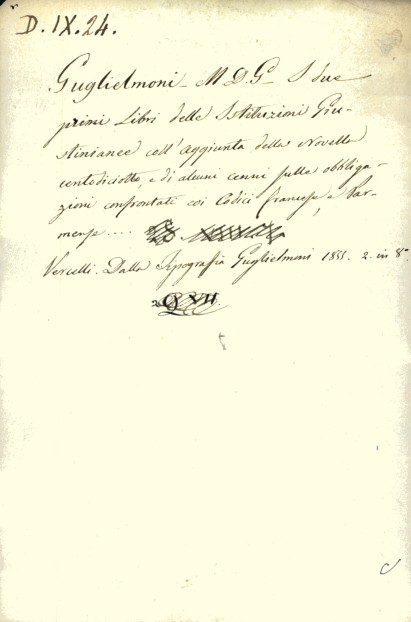 D. IX. 24.
Guglielmoni M. D. G. I due
primi Libri delle Istituzioni Giu-
stinianee coll'aggiunta della Novella
centodiciotto, e di alcuni cenni sulle obbliga-
zioni confrontati coi Codici francese e Par-
mense....
Vercelli. Dalla Tipografia Guglielmoni 1831. 2. in 8°